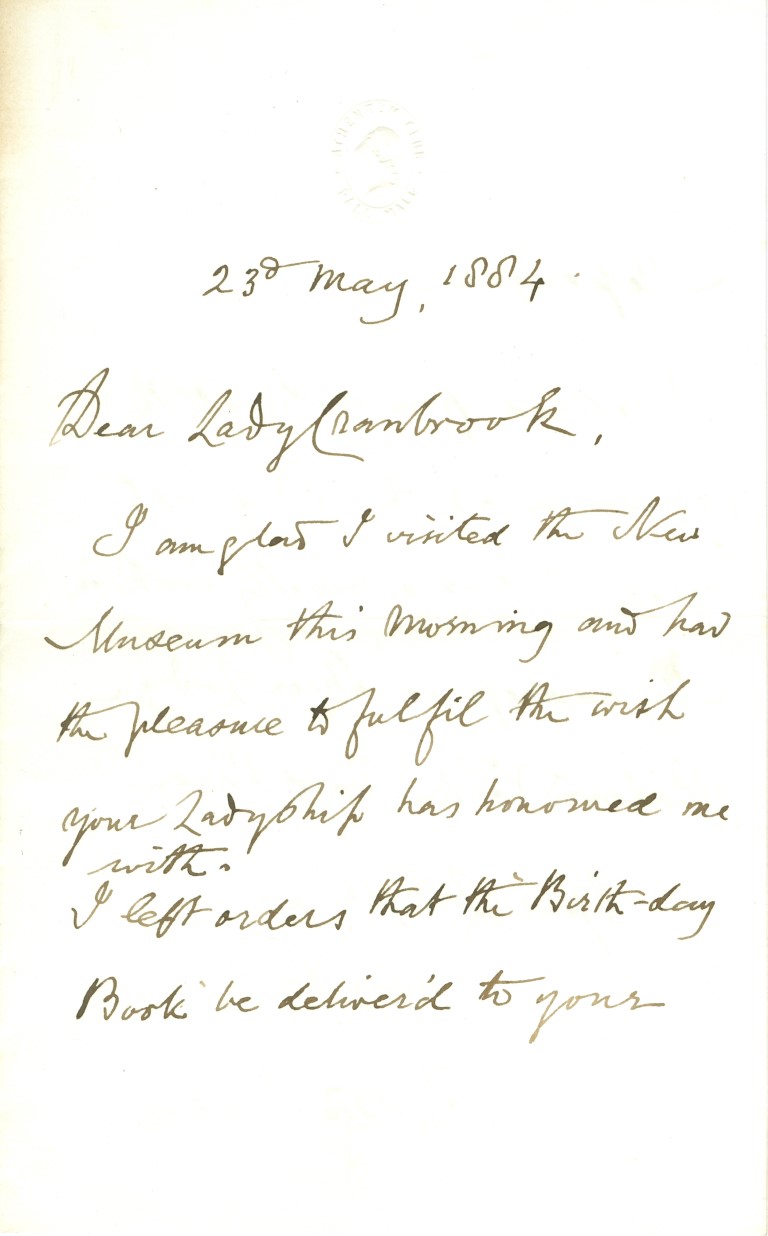 23d May, 1884.
Dear Lady Cranbrook,
I am glad I visited the New
Museum this morning and had
the pleasure to fulfil the wish
your Ladyship has honoured me
with.
I left orders that the 'Birth-day
Book' be deliver'd to your